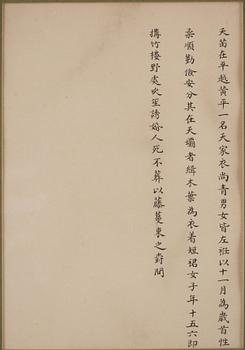 天苗在平越黃平一名天家衣尚青男女皆左袵以十一月為歲首性
柔順勤儉安分其在天壩者緝木葉為衣着短裙女子年十五六即
搆竹樓野處吹笙誘婚人死不葬以藤蔓束之樹間